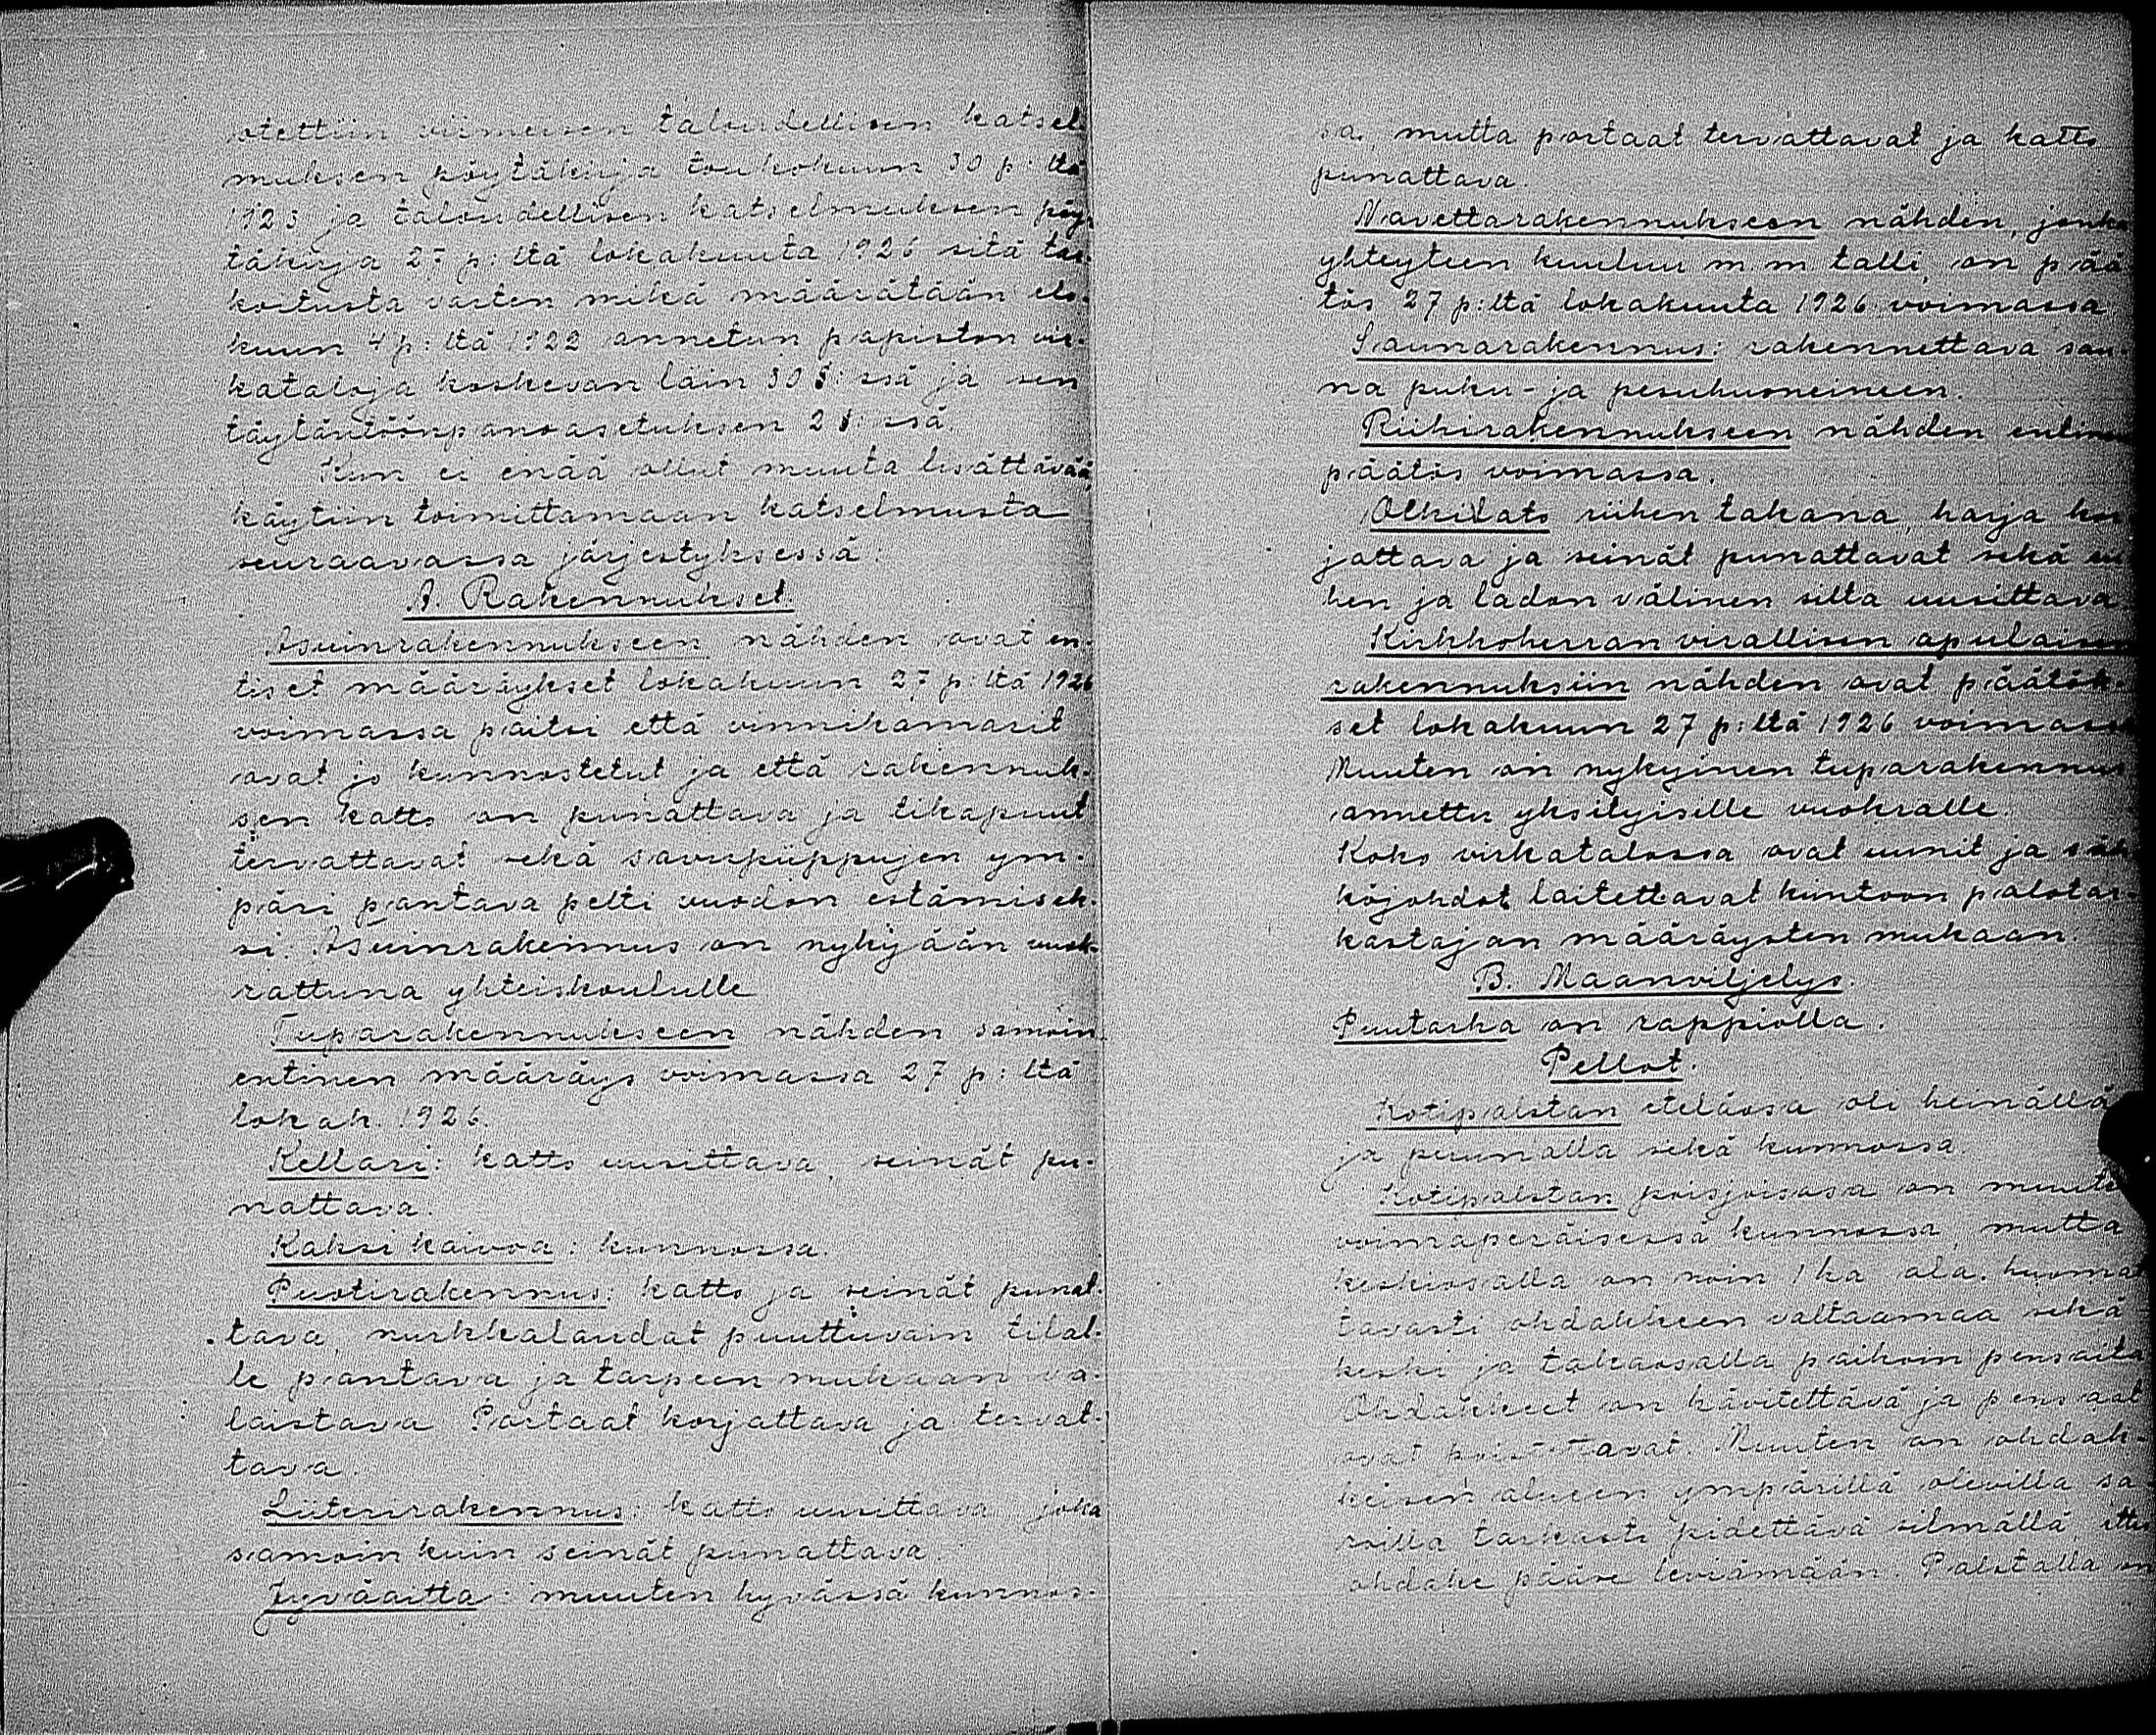 otettiin viimeisen taloudellisen katsel
muksen pöytäkirja toukokuun 30 p:ltä
1923 ja taloudellisen katselmuksen pöy-
täkirja 27 p:ltä lokakuuta 1926 sitä tar-
koitusta varten mikä määrätään elo-
kuun 4 p:ltä 1922 annetun papiston vir-
kataloja koskevan lain 30 §:ssä ja sen
täytäntöönpanoasetuksen 2 §:ssä.
Kun ei enää ollut muuta lisättävää,
käytiin toimittamaan katselmusta
seuraavassa järjestyksessä:
A. Rakennukset.
Asuinrakennukseen nähden ovat en-
tiset määräykset lokakuun 27 p:ltä 1926
voimassa paitsi että vinnikamarit
ovat jo kunnostetut ja että rakennuk-
sen katto on punattava ja tikapuut
tervattavat sekä savupiippujen ym-
päri pantava pelti vuodon estämisek-
si. Asuinrakennus on nykyjään vuok-
rattuna yhteiskoululle
Tuparakennukseen nähden samoin
entinen määräys voimassa 27 p:ltä
lokak. 1926.
Kellari: katto uusittava, seinät pu-
nattava.
Kaksi kaivoa: kunnossa.
Puotirakennus: katto ja seinät punat-
tava, nurkkalaudat puuttuvain tilal-
le pantava ja tarpeen mukaan va-
laistava Portaat korjattava ja tervat-
tava.
Liiterirakennus: katto uusittava joka
samoin kuin seinät punattava.
Jyväaitta: muuten hyvässä kunnos-
sa, mutta portaat tervattavat ja katto
punattava.
Navettarakennukseen nähden, jonka
yhteyteen kuuluu m.m. talli, on pää-
tös 27 p:ltä lokakuuta 1926 voimassa
Saunarakennus: rakennettava sau-
na puku- ja pesuhuoneineen.
Riihirakennukseen nähden entinen
päätös voimassa.
Olkilato riihen takana, harja kor
jattava ja seinät punattavat sekä rii
hen ja ladon välinen silta uusittava.
Kirkkoherran virallisen apulaisen
rakennuksiin nähden ovat päätök-
set lokakuun 27 p:ltä 1926 voimassa
Muuten on nykyinen tuparakennus
annettu yksityisille vuokralle.
Koko virkatalossa ovat uunit ja säh
köjohdot laitettavat kuntoon palotar-
kastajan määräysten mukaan.
B. Maanviljelys.
Puutarha on rappiolla.
Pellot.
Kotipalstan eteläosa oli heinällä
ja puunalla sekä kunnossa.
Kotipalstan pohjoisosa on muuten
voimaperäisessä kunnossa, mutta
keskiosalla on noin 1 ha ala. huomat
tavasti ohdakkeen valtaamaa sekä
keski ja takaosalla paikoin pensaita
Ohdakkeet on hävitettävä ja pensaat
ovat poistettavat. Muuten on ohdak-
keisen alueen ympärillä olevilla sa
roilla tarkasti pidettävä silmällä, ettei
ohdake pääse leviämään. Palstalla on